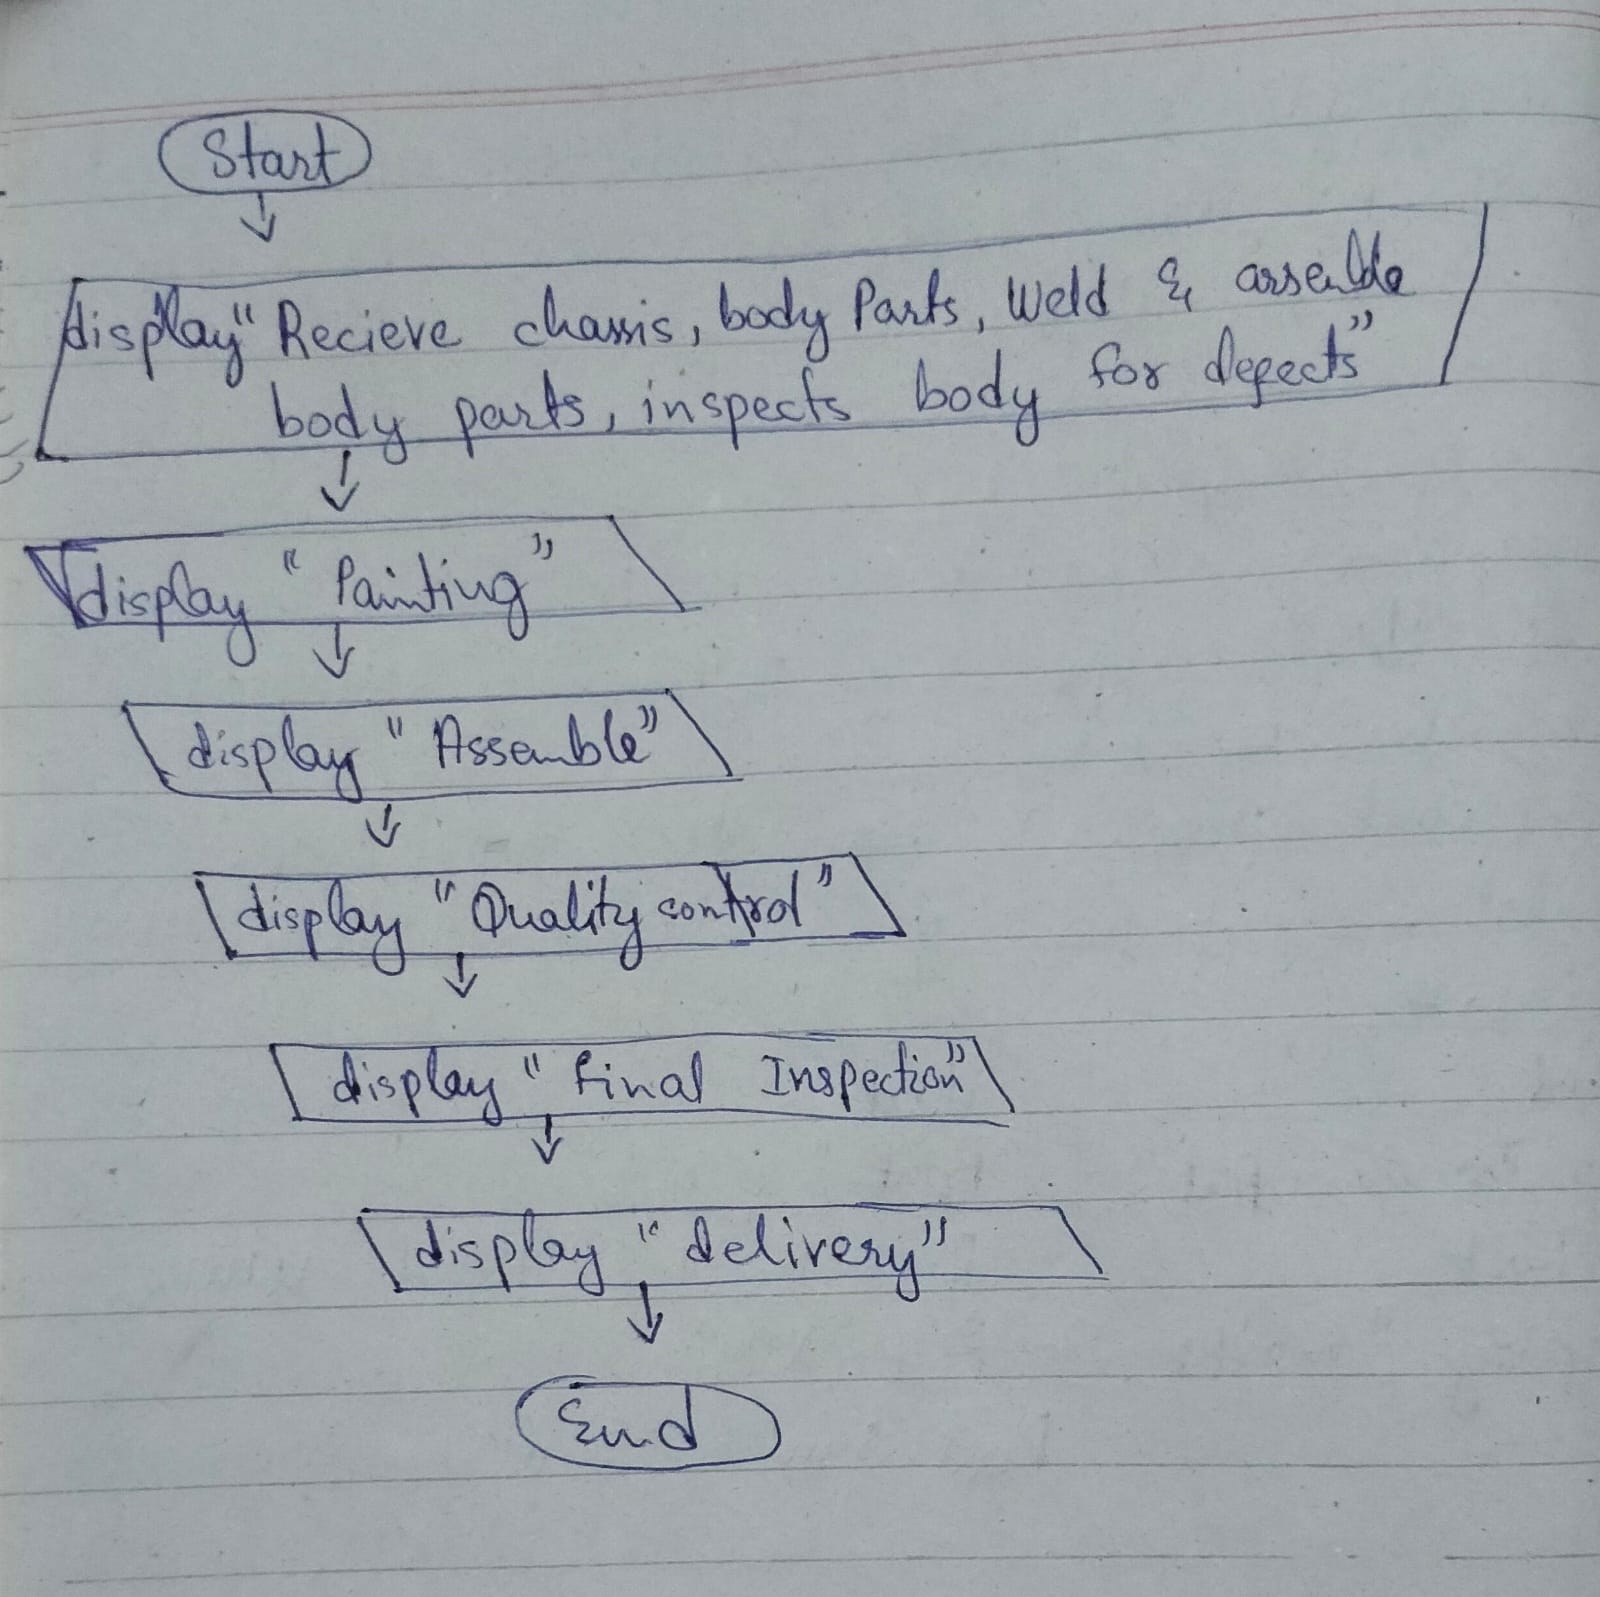 Start
display "Recieve chassis, body Parts, Weld & assemble
body parts, inspects body for defects"
display "Painting"
display "Assemble"
display "Quality control"
display "Final Inspection"
display "delivery"
End